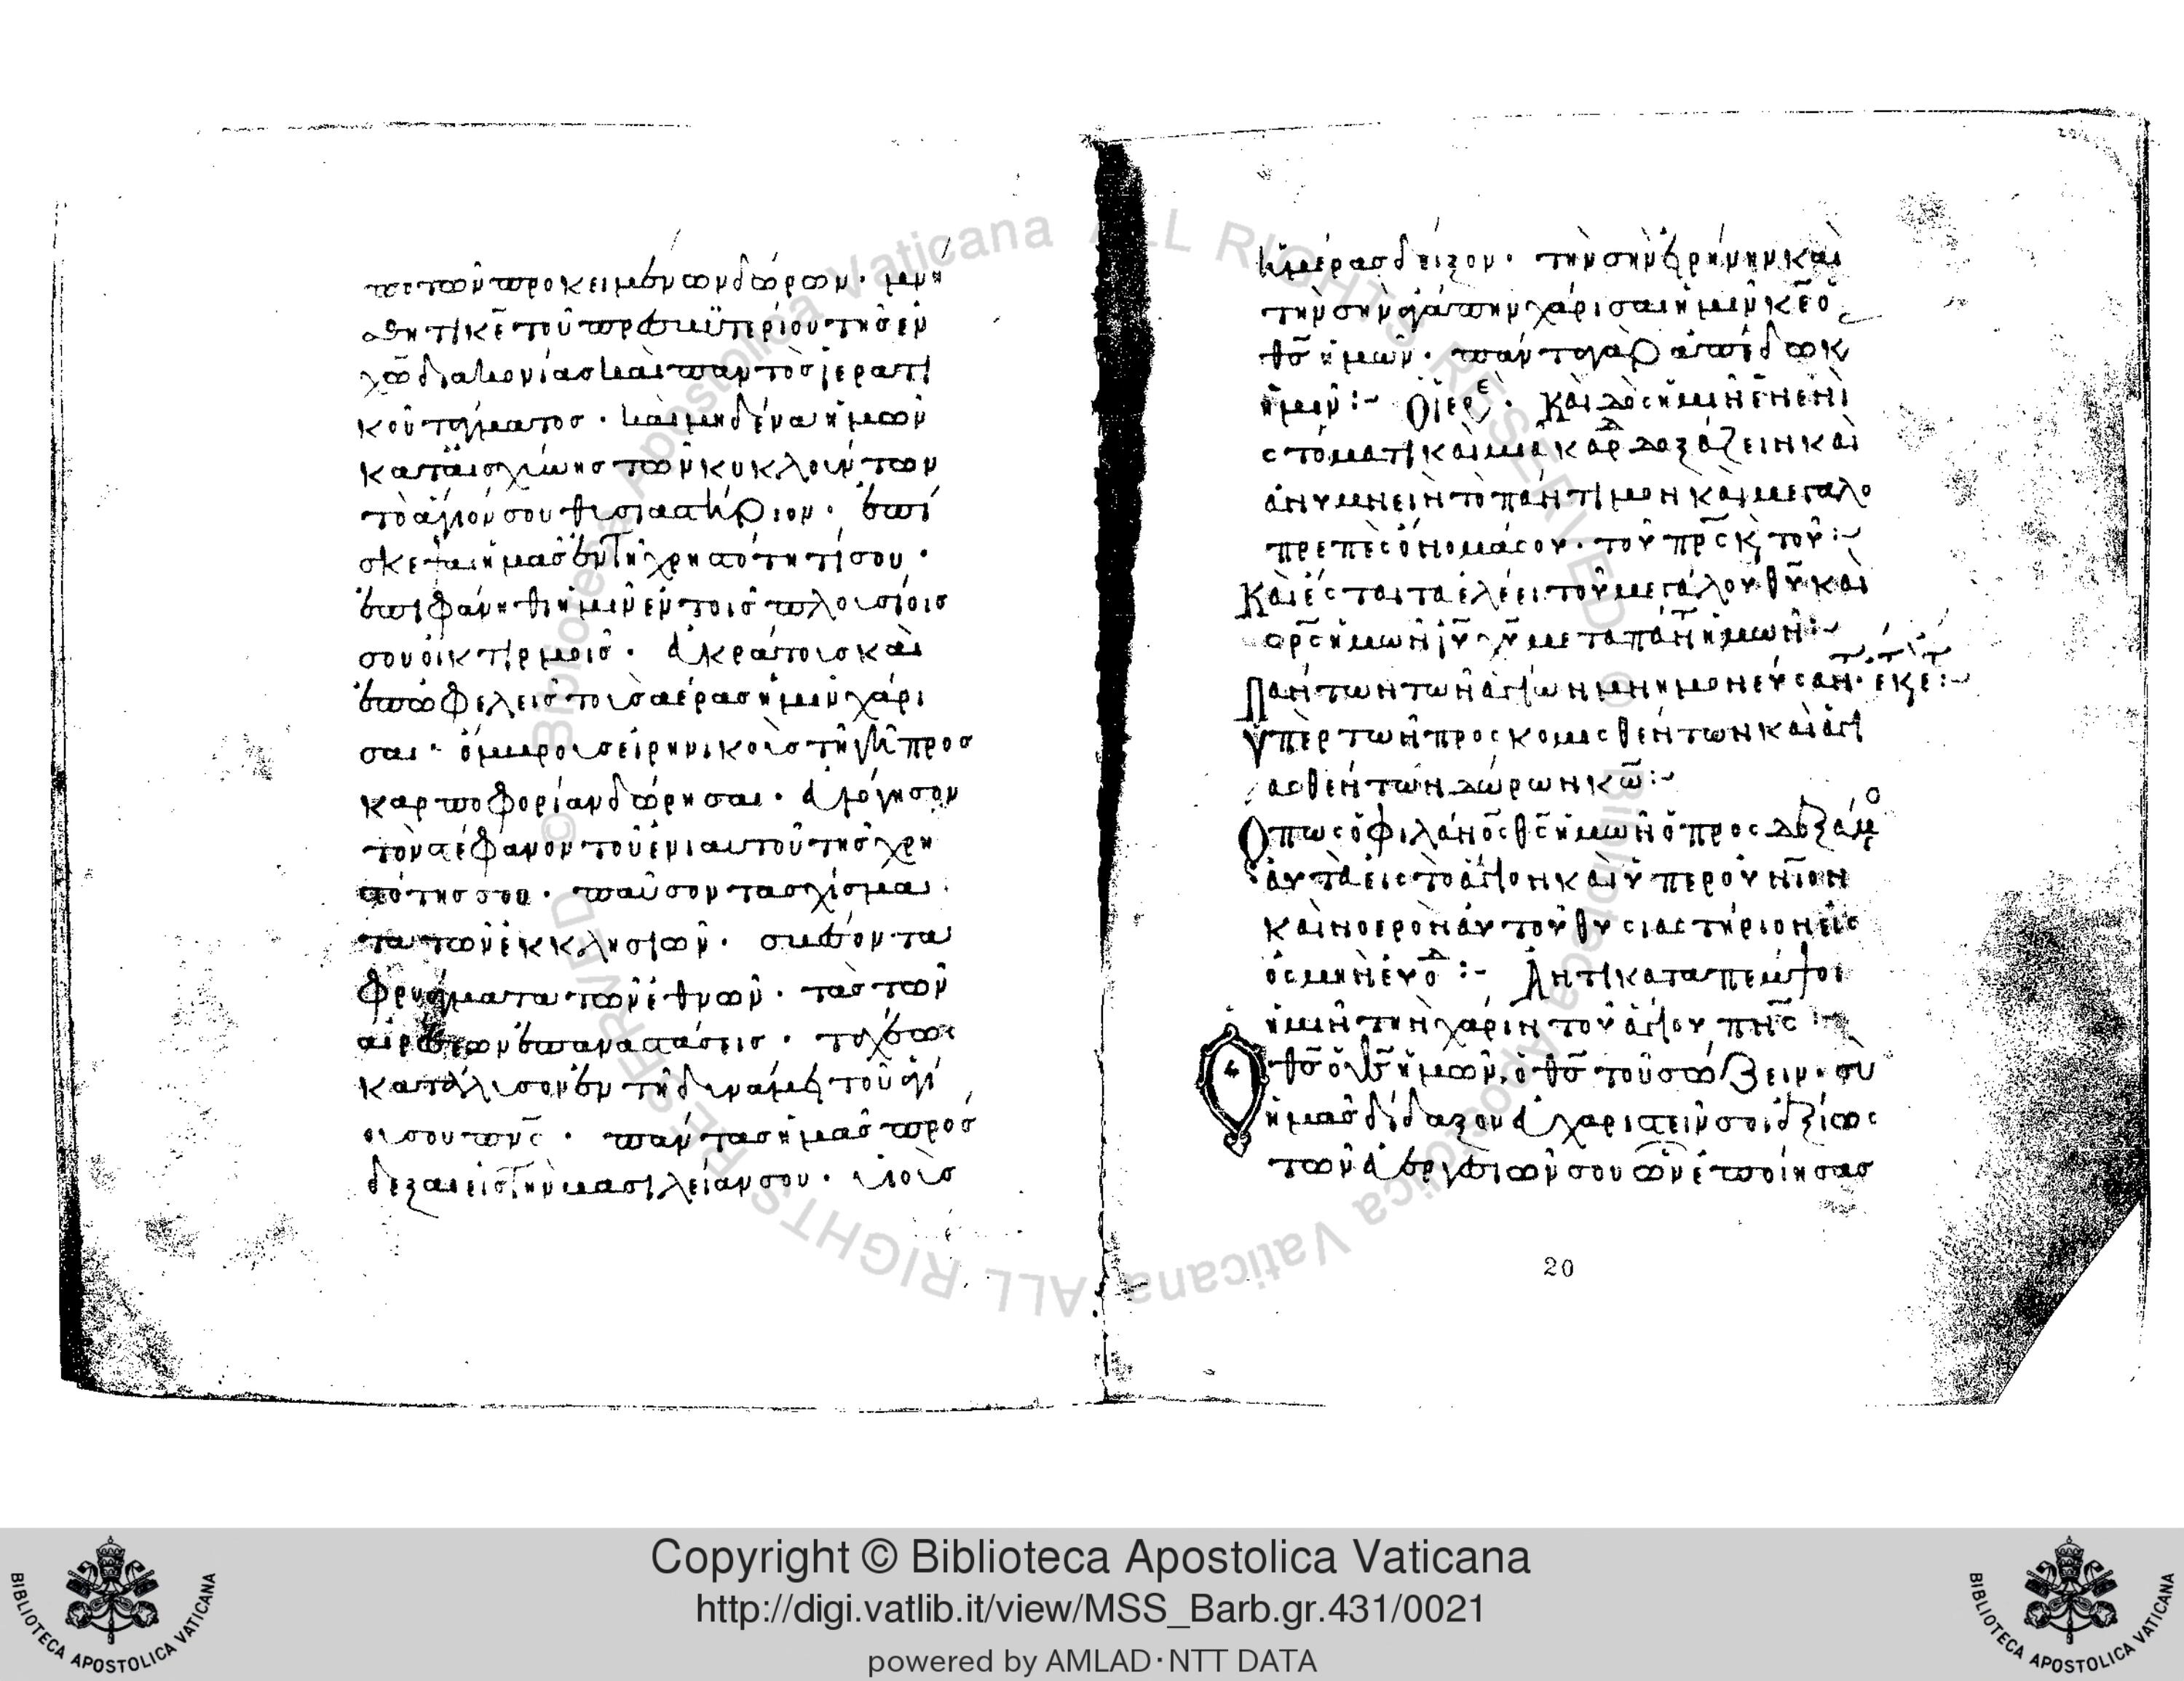 πὶ τῶν προκειμένων δώρων· μνή
σθητι κε̄ τοῦ πρεσβυτερίου τῆς ἐν
χω̄ διακονίας καὶ παντὸς ἱερατι
κοῦ τάγματος· καὶ μηδένα ἡμῶν
καταισχύνης τῶν κυκλούντων
τὸ ἅγιόν σου θυσιαστήριον· ἐπί
σκεψαι ἡμᾶς ἐν τῆ χρηστότητί σου·
ἐπιφάνηθι ἡμῖν ἐν τοῖς πλουσίοις
σου οἰκτιρμοῖς· εὐκράτους καὶ
ἐπωφελεῖς τοὺς ἀέρας ἡμῖν χάρι
σαι· ὄμβρους εἰρηνικοὺς τῆ γῆ πρὸς
καρποφορίαν δώρησαι· εὐλόγησον
τὸν στέφανον τοῦ ἐνιαυτοῦ τῆς χρη
στότητός σου· παῦσον τὰ σχίσμα
τα τῶν ἐκκλησιῶν· σβέσον τὰ
φρυάγματα τῶν ἐθνῶν· τὰς τῶν
αἱρέσεων ἐπαναστάσεις· ταχέως
κατάλυσον ἐν τῆ δυνάμει τοῦ ἁγί
ου σου πν̄ς· πάντας ἡμᾶς πρόσ
δεξαι εἰς τὴν βασιλείαν σου· υἱοὺς
ἡμέρας δεῖξον· τὴν σὴν εἰρήνην καὶ
τὴν σὴν ἀγάπην χάρισαι ἡμῖν κε̄ ὁ
θς̄ ἡμῶν· πάντα γὰρ ἀπέδωκ
ἡμῖν:~ Ὁ ἱερε· Καὶ δὸς ἡμῖν ἐν ἑνὶ
στόματι καὶ μιᾶ καρδ δοξάζειν καὶ
ἀνυμνεῖν τὸ πάντιμον καὶ μεγαλο
πρεπὲς ὄνομά σου· τοῦ πρ̄ς κ τοῦ:~
Καὶ ἔσται τὰ ἐλέει τοῦ μεγάλου θῡ καὶ
σρ̄ς ἡμῶν ῑῡ χ̄ῡ μετὰ πάντ ἡμῶν:~
Πάντων τῶν ἁγίων μνημονεύσαν· ἔκε:~
Ὑπὲρ τῶν προσκομισθέντων καὶ ἁγι
ασθέντων δώρων κω̄:~
Ὅπως ὁ φιλάνος̄ θς̄ ἡμῶν ὁ προσδεξάμ
αὐτὰ εἰς τὸ ἅγιον καὶ ὑπερουν̄ιον
καὶ νοερὸν αὐτοῦ θυσιαστήριον εἰς
ὀσμὴν εὐο:~ Ἀντικαταπέμψοι
ἡμῖν τὴν χάριν τοῦ ἁγίου πν̄ς:~
Ὁ θς̄ ὁ ἡμῶν, ὁ θς̄ τοῦ σώζειν· σὺ
ἡμᾶς δίδαξον εὐχαριστεῖν σοι ἀξίως
τῶν εὐεργεσιῶν σου ὧν ἐποίησας
20
Copyright © Biblioteca Apostolica Vaticana
http://digi.vatlib.it/view/MSS_Barb.gr.431/0021
powered by AMLAD·NTT DATA
BIBLIOTECA APOSTOLICA VATICANA
BIBLIOTECA APOSTOLICA VATICANA